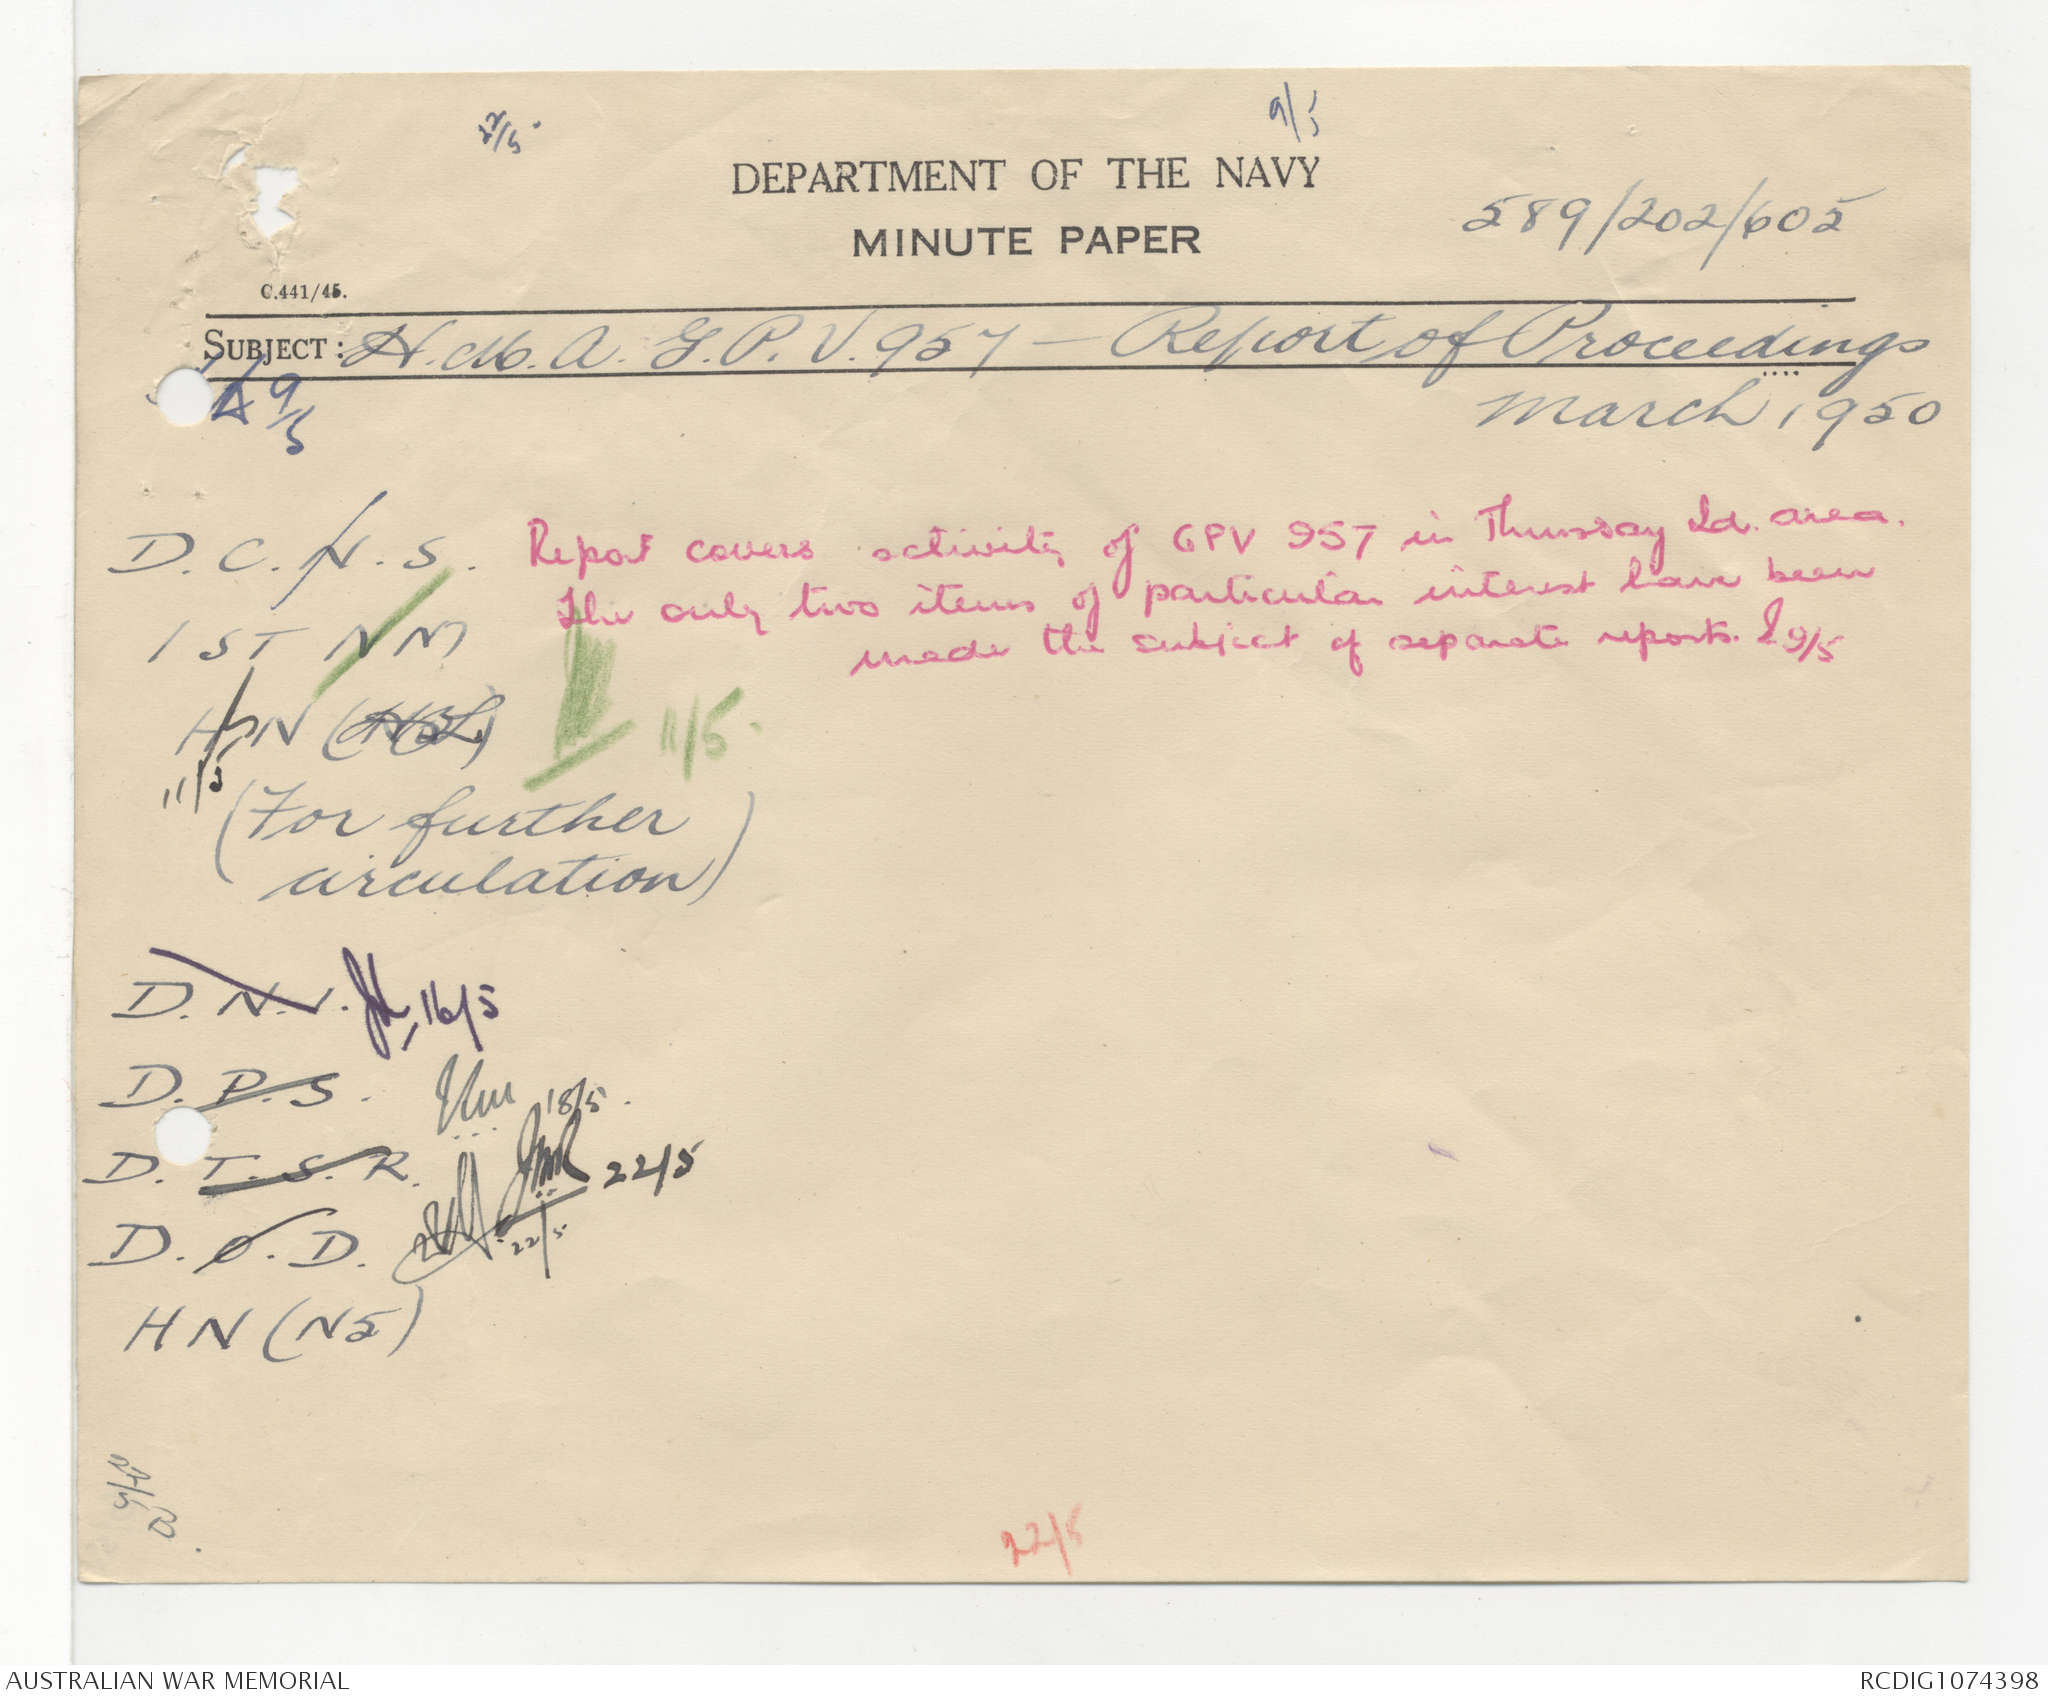 22/5.
9/5
DEPARTMENT OF THE NAVY
MINUTE PAPER
589/202/605
C.441/45.
SUBJECT: H.M.A. G.P.V. 957 - Report of Proceedings
March 1950
9/5
D.C.N.S.
Report covers activity of GPV 957 in Thursday Id. area.
The only two items of particular interest have been
made the subject of separate reports. 9/5
1ST NM
HN
11/5.
11/5
(For further
circulation)
D.N.I. 16/5
D.P.S. 18/5.
D.T.S.R. 22/5
D.O.D. 22/5
HN (N5)
22/5
22/5
AUSTRALIAN WAR MEMORIAL
RCDIG1074398